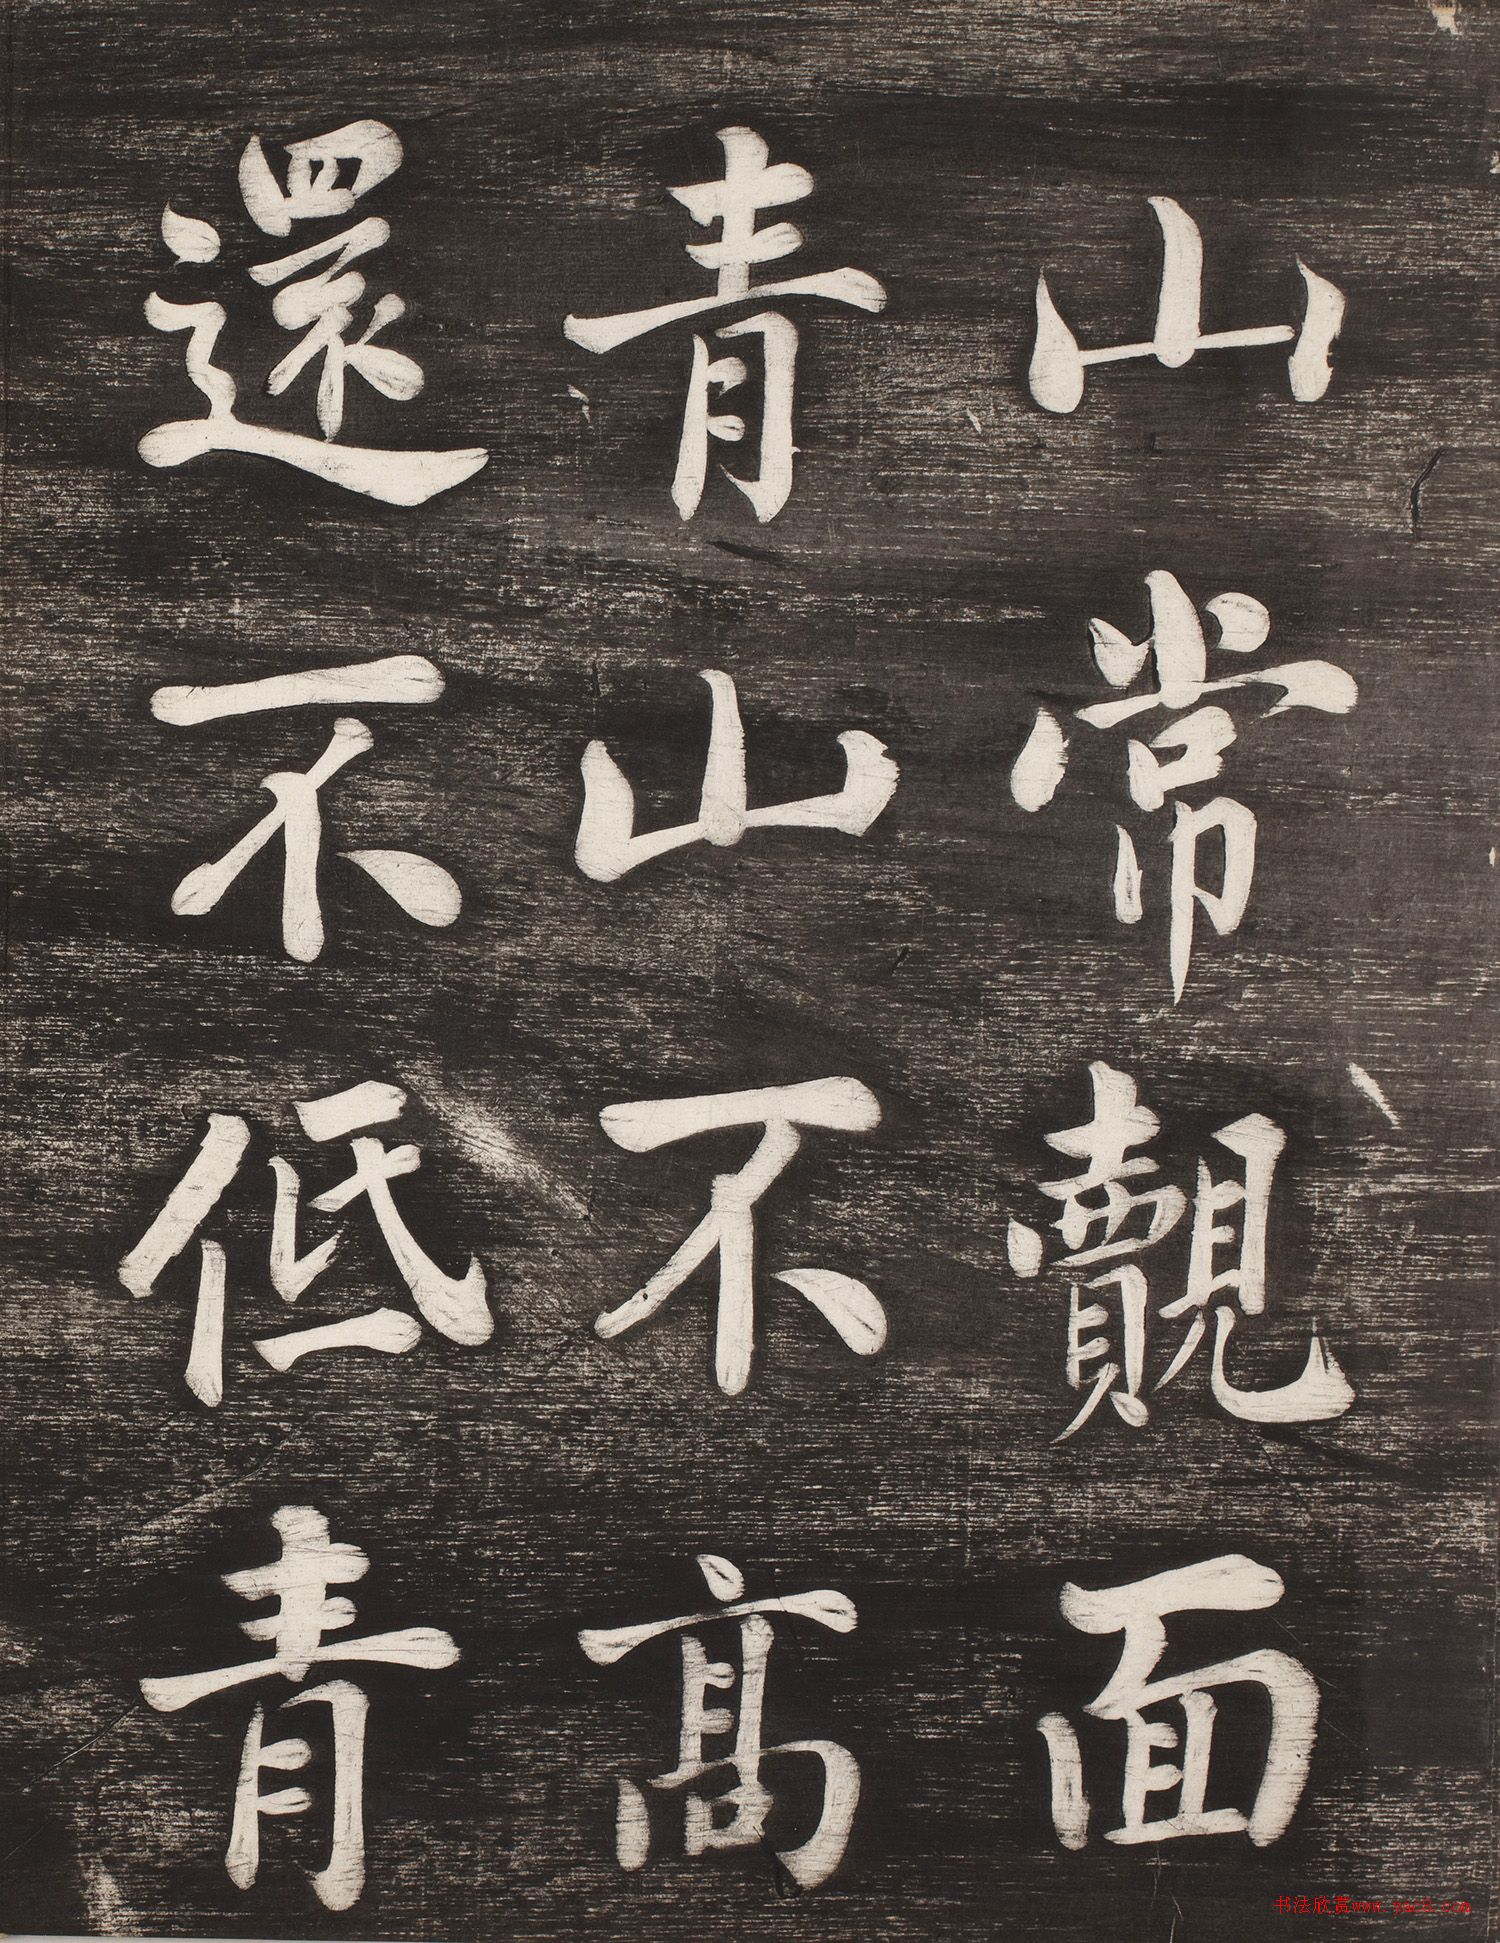 山常覿面
青山不高
還不低青
书法欣赏www.yac8.com